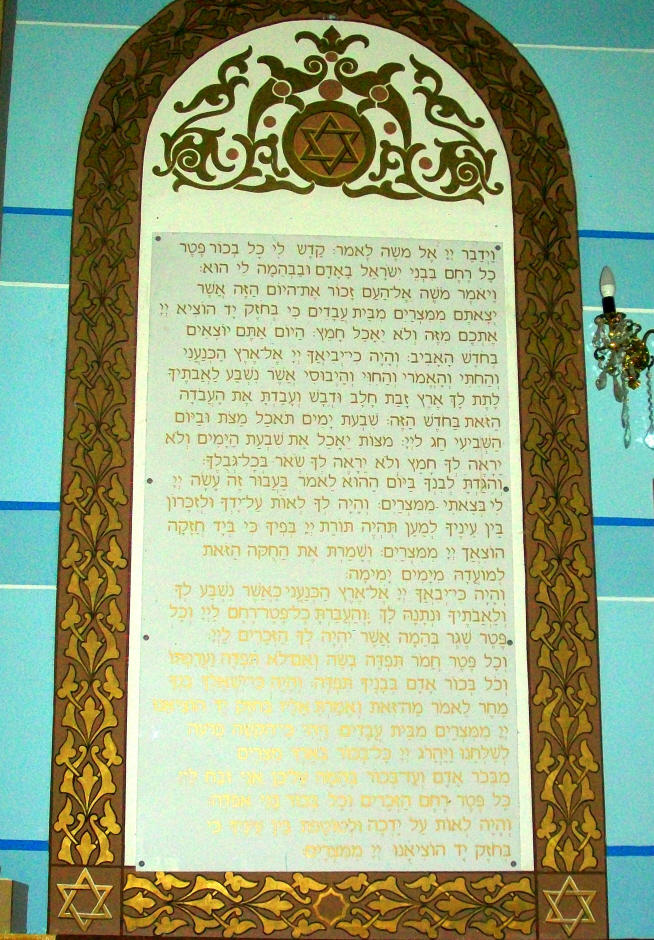 וַיְדַבֵּר יְיָ אֶל מֹשֶׁה לֵּאמֹר: קַדֶּשׁ לִי כָל בְּכוֹר פֶּטֶר
כָּל רֶחֶם בִּבְנֵי יִשְׂרָאֵל בָּאָדָם וּבַבְּהֵמָה לִי הוּא:
וַיֹּאמֶר מֹשֶׁה אֶל־הָעָם זָכוֹר אֶת־הַיּוֹם הַזֶּה אֲשֶׁר
יְצָאתֶם מִמִּצְרַיִם מִבֵּית עֲבָדִים כִּי בְּחֹזֶק יָד הוֹצִיא יְיָ
אֶתְכֶם מִזֶּה וְלֹא יֵאָכֵל חָמֵץ: הַיּוֹם אַתֶּם יוֹצְאִים
בְּחֹדֶשׁ הָאָבִיב: וְהָיָה כִי־יְבִיאֲךָ יְיָ אֶל־אֶרֶץ הַכְּנַעֲנִי
וְהַחִתִּי וְהָאֱמֹרִי וְהַחִוִּי וְהַיְבוּסִי אֲשֶׁר נִשְׁבַּע לַאֲבֹתֶיךָ
לָתֶת לָךְ אֶרֶץ זָבַת חָלָב וּדְבָשׁ וְעָבַדְתָּ אֶת הָעֲבֹדָה
הַזֹּאת בַּחֹדֶשׁ הַזֶּה: שִׁבְעַת יָמִים תֹּאכַל מַצֹּת וּבַיּוֹם
הַשְּׁבִיעִי חַג לַייָ: מַצּוֹת יֵאָכֵל אֵת שִׁבְעַת הַיָּמִים וְלֹא
יֵרָאֶה לְךָ חָמֵץ וְלֹא יֵרָאֶה לְךָ שְׂאֹר בְּכָל־גְּבֻלֶךָ:
וְהִגַּדְתָּ לְבִנְךָ בַּיּוֹם הַהוּא לֵאמֹר בַּעֲבוּר זֶה עָשָׂה יְיָ
לִי בְּצֵאתִי מִמִּצְרָיִם: וְהָיָה לְךָ לְאוֹת עַל־יָדְךָ וּלְזִכָּרוֹן
בֵּין עֵינֶיךָ לְמַעַן תִּהְיֶה תּוֹרַת יְיָ בְּפִיךָ כִּי בְּיָד חֲזָקָה
הוֹצִאֲךָ יְיָ מִמִּצְרָיִם: וְשָׁמַרְתָּ אֶת הַחֻקָּה הַזֹּאת
לְמוֹעֲדָהּ מִיָּמִים יָמִימָה:
וְהָיָה כִּי־יְבִאֲךָ יְיָ אֶל־אֶרֶץ הַכְּנַעֲנִי כַּאֲשֶׁר נִשְׁבַּע לְךָ
וְלַאֲבֹתֶיךָ וּנְתָנָהּ לָךְ: וְהַעֲבַרְתָּ כָל־פֶּטֶר־רֶחֶם לַייָ וְכָל
פֶּטֶר שֶׁגֶר בְּהֵמָה אֲשֶׁר יִהְיֶה לְךָ הַזְּכָרִים לַייָ:
וְכָל פֶּטֶר חֲמֹר תִּפְדֶּה בְשֶׂה וְאִם־לֹא תִפְדֶּה וַעֲרַפְתּוֹ
וְכֹל בְּכוֹר אָדָם בְּבָנֶיךָ תִּפְדֶּה: וְהָיָה כִּי־יִשְׁאָלְךָ בִנְךָ
מָחָר לֵאמֹר מַה־זֹּאת וְאָמַרְתָּ אֵלָיו בְּחֹזֶק יָד הוֹצִיאָנוּ
יְיָ מִמִּצְרַיִם מִבֵּית עֲבָדִים: וַיְהִי כִּי־הִקְשָׁה פַרְעֹה
לְשַׁלְּחֵנוּ וַיַּהֲרֹג יְיָ כָּל־בְּכוֹר בְּאֶרֶץ מִצְרַיִם
מִבְּכֹר אָדָם וְעַד־בְּכוֹר בְּהֵמָה עַל־כֵּן אֲנִי זֹבֵחַ לַייָ
כָּל פֶּטֶר רֶחֶם הַזְּכָרִים וְכָל בְּכוֹר בָּנַי אֶפְדֶּה:
וְהָיָה לְאוֹת עַל יָדְכָה וּלְטוֹטָפֹת בֵּין עֵינֶיךָ כִּי
בְּחֹזֶק יָד הוֹצִיאָנוּ יְיָ מִמִּצְרָיִם: